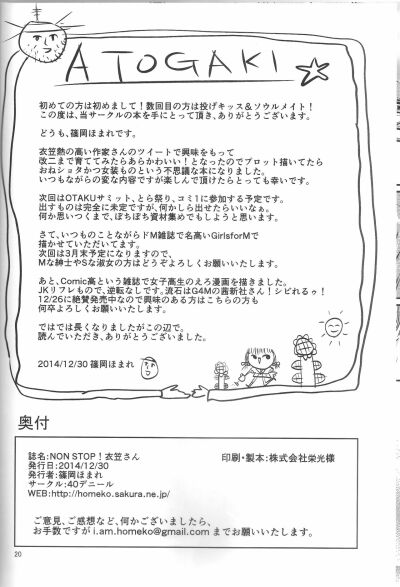 ATOGAKI
初めての方は初めまして！数回目の方は投げキッス＆ソウルメイト！
この度は、当サークルの本を手にとって頂き、ありがとうございます。
どうも、篠岡ほまれです。
衣笠熱の高い作家さんのツイートで興味をもって
改二まで育ててみたらあらかわいい！となったのでプロット描いてたら
おねショタかつ女装ものという不思議な本になりました。
いつもながらの変な内容ですが楽しんで頂けたらとっても幸いです。
次回はOTAKUサミット、とら祭り、コミ1に参加する予定です。
出すものは完全に未定ですが、何かしら出せたらいいなぁ。
何か思いつくまで、ぼちぼち資材集めでもしようと思います。
さて、いつものことながらドM雑誌で名高いGirlsforMで
描かせていただいてます。
次回は3月末予定になりますので、
Mな紳士やSな淑女の方はどうぞよろしくお願いいたします。
あと、Comic高という雑誌で女子高生のえろ漫画を描きました。
JKリフレもので、逆転なしです。流石はG4Mの茜新社さん！シビれるぅ！
12/26に絶賛発売中なので興味のある方はこちらの方も
何卒よろしくお願いします。
ではでは長くなりましたがこの辺で。
読んでいただき、ありがとうございました。
2014/12/30 篠岡ほまれ
奥付
誌名：NON STOP！衣笠さん
発行日：2014/12/30
発行者：篠岡ほまれ
サークル：40デニール
WEB：http://homeko.sakura.ne.jp/
印刷・製本：株式会社栄光様
ご意見、ご感想など、何かございましたら、
お手数ですが i.am.homeko@gmail.com までお願いいたします。
20